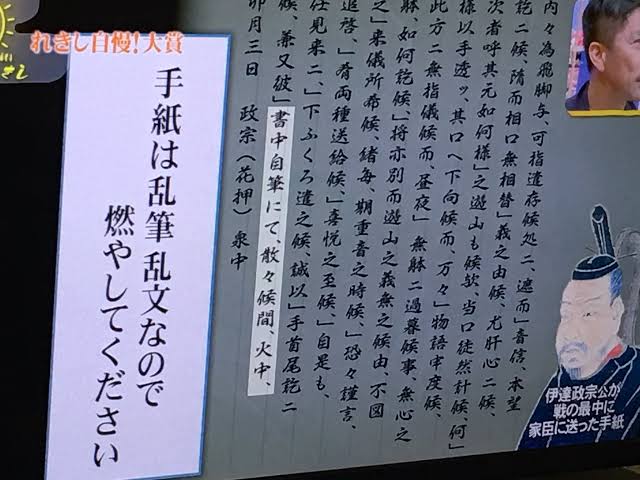 れきし自慢!大賞
内々為飛脚与、可指遣存候処ニ、遮而」音信、本望
訖ニ候、隋而相口無相替」義之由候、尤肝心ニ候、
次者呼其元如何様」之遊山も候欤、当口徒然計候、何」
様以手透ッ、其口へ下向候而、万々」物語申度候、
此方ニ無指儀候而、昼夜」無躰ニ過暮候事、無心之
躰、如何訖候、」将亦別而遊山之義無之候由、不図
之」来儀所希候、緒毎、期重音之時候、」恐々謹言、
追啓、」肴両種送給候、」喜悦之至候、」自是も、
任見来ニ、」下ふくろ遣之候、誠以」手首尾訖ニ
候、兼又破」書中自筆にて、散々候間、火中、
卯月三日 政宗(花押) 泉中
手紙は乱筆乱文なので
燃やしてください
伊達政宗公が
戦の最中に
家臣に送った手紙